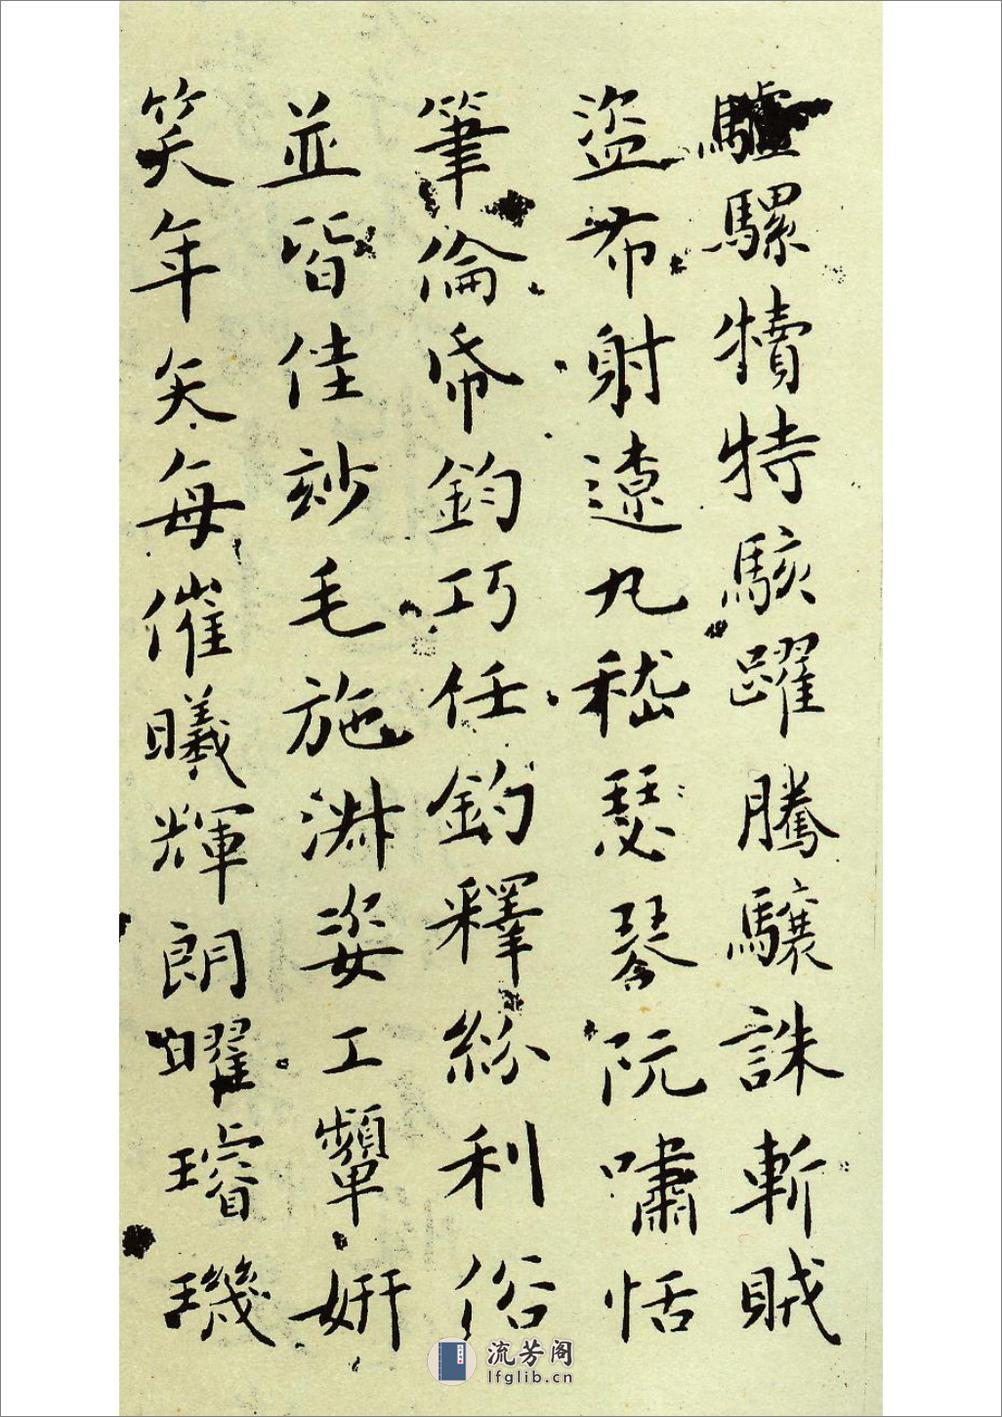 驢騾犢特駭躍騰驤誅斬賊
盜布射遼丸嵇瑟琴阮嘯恬
筆倫帋鈞巧任釣釋紛利俗
並皆佳妙毛施淋姿工顰妍
笑年矢每催曦輝朗曜璿璣
流芳阁
lfglib.cn